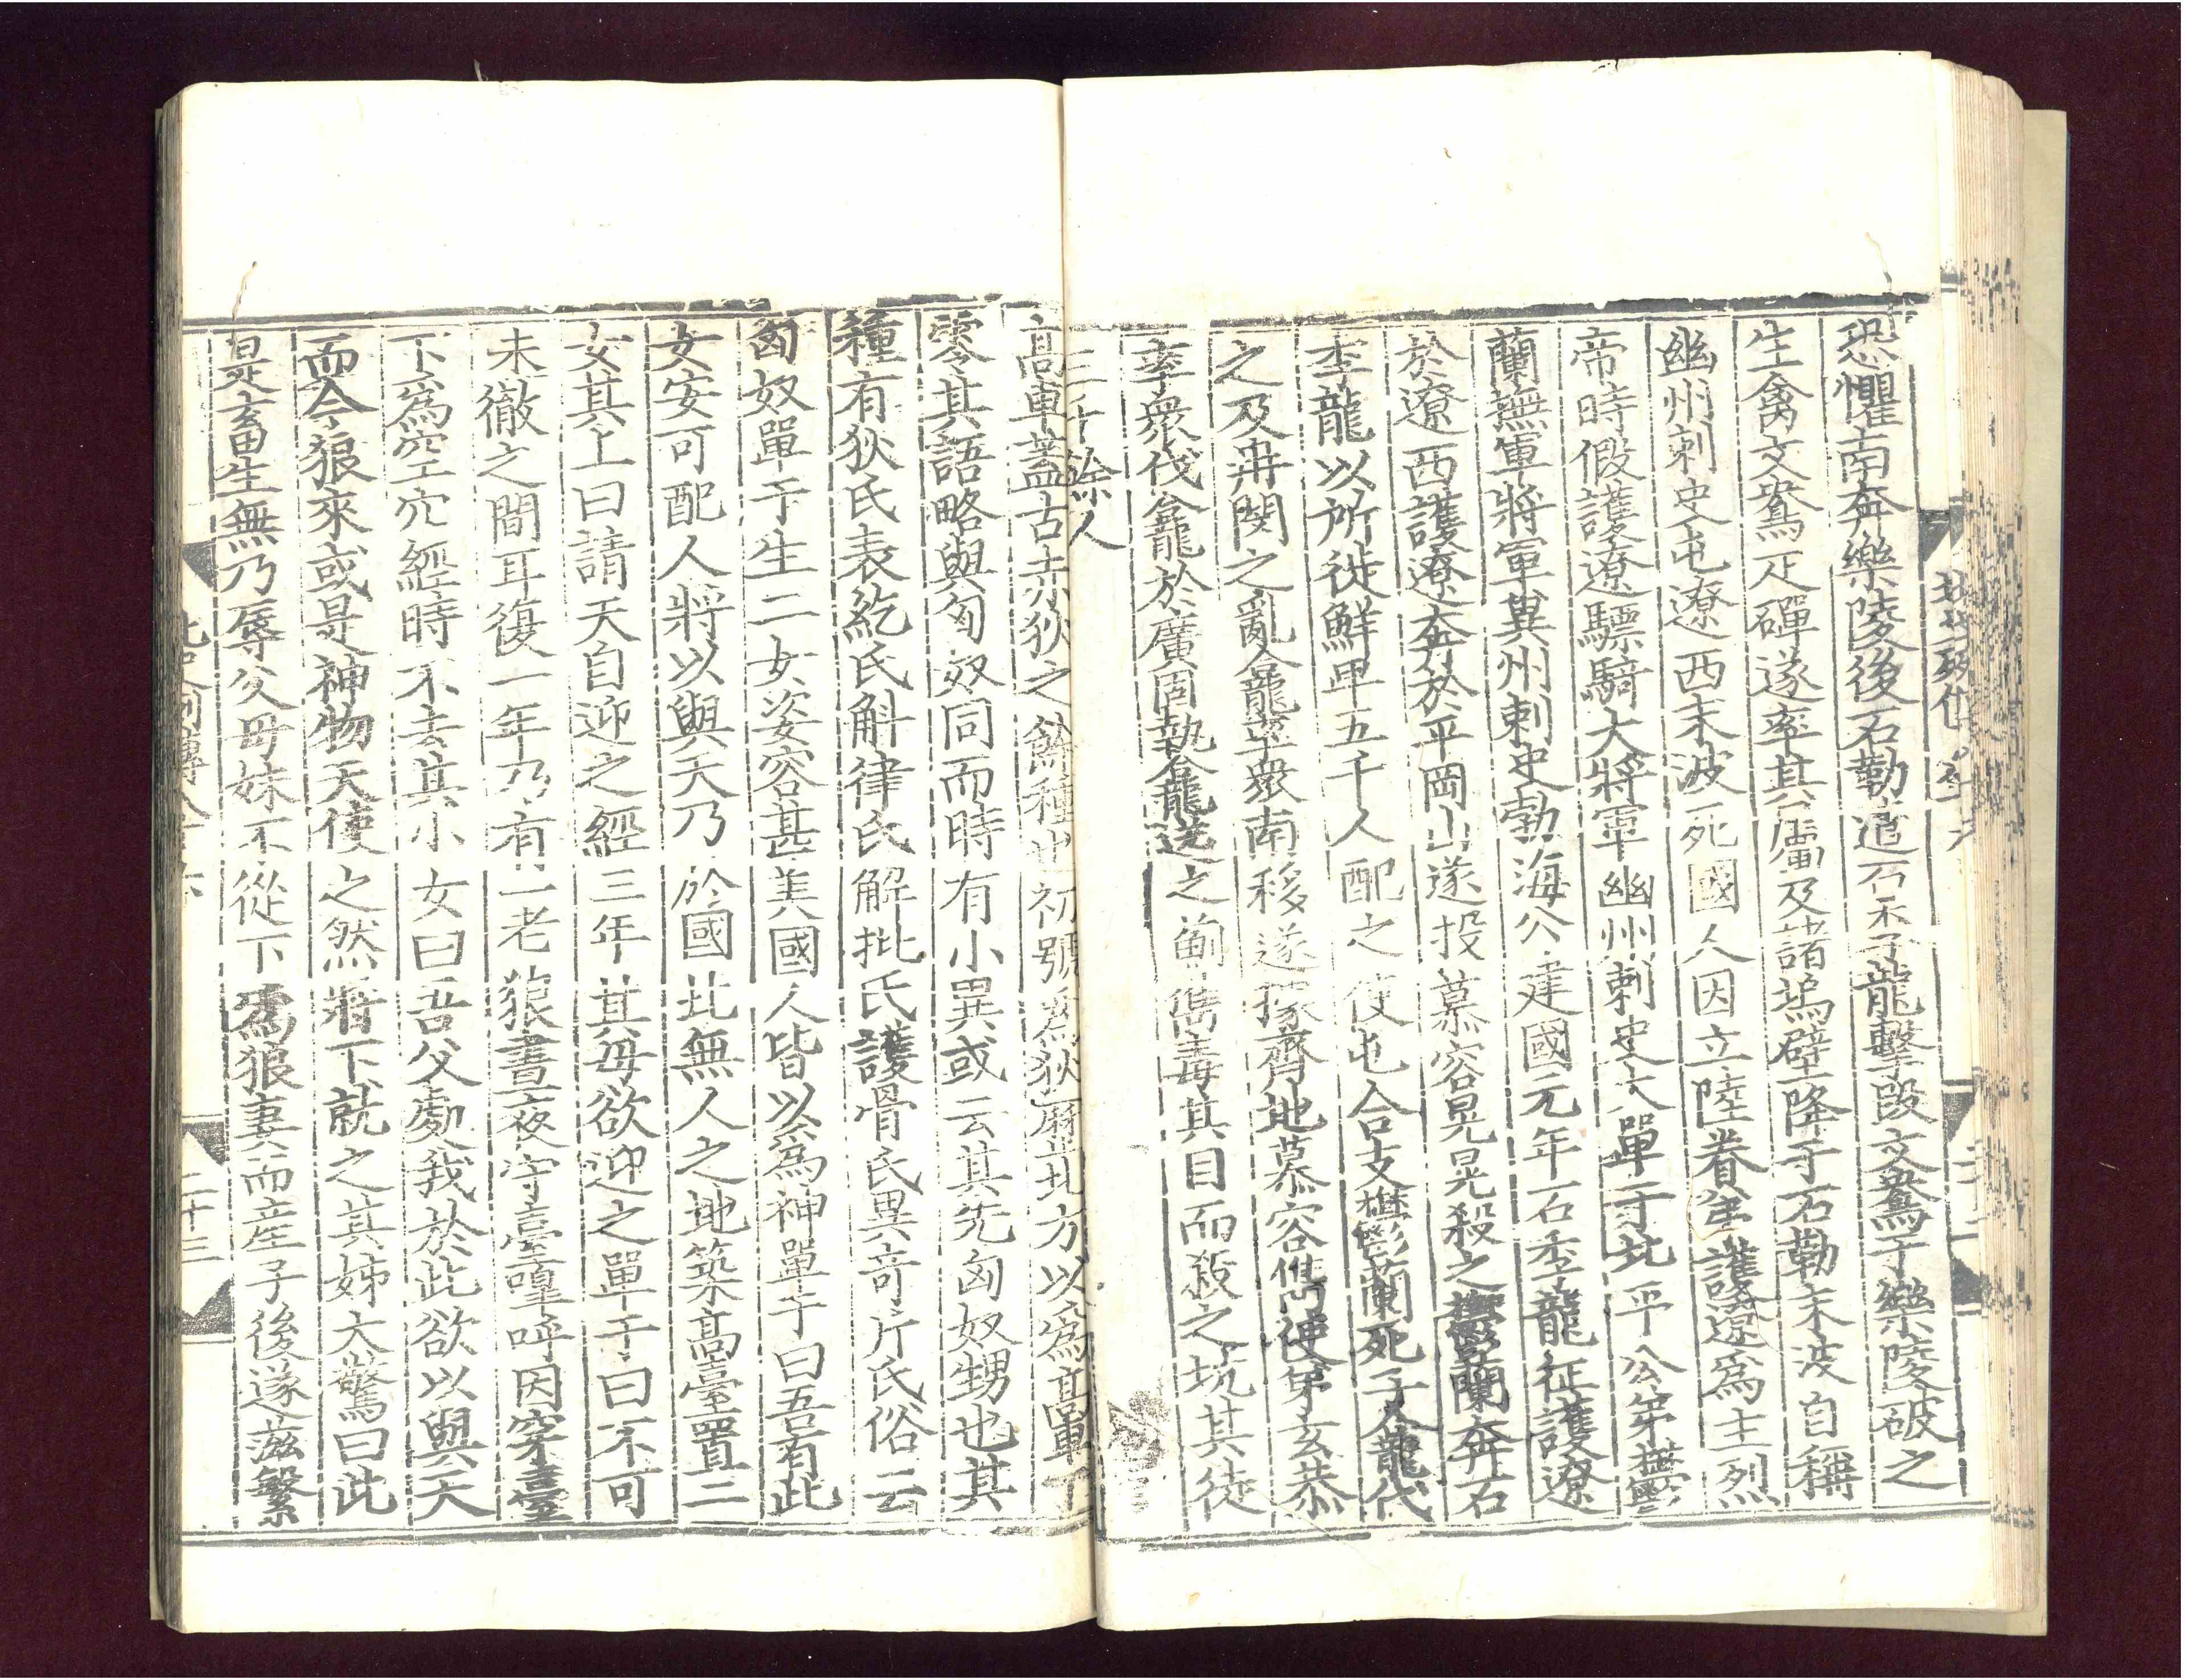 恐懼南奔樂陵後石勒遣石季龍擊段文鴦于樂陵破之
生禽文鴦疋磾遂率其屬及諸塢壁降于石勒末波自稱
幽州刺史屯遼西末波死國人因立陸眷弟護遼爲主烈
帝時假護遼驃騎大將軍幽州刺史大單于北平公弟鬱
蘭撫軍將軍冀州刺史勃海公建國元年石季龍征護遼
於遼西護遼奔於平岡山遂投慕容晃晃殺之鬱蘭奔石
季龍以所徙鮮卑五千人配之使屯合支鬱蘭死子龕代
之及冉閔之亂龕率衆南移遂據齊地慕容儁使弟玄恭
率衆伐龕於廣固執龕送之薊儁毒其目而殺之坑其徒
三千餘人
高車蓋古赤狄之餘種也初號爲狄歷北方以爲高車丁
零其語略與匈奴同而時有小異或云其先匈奴甥也其
種有狄氏表紇氏斛律氏解批氏護骨氏異奇斤氏俗云
匈奴單于生二女姿容甚美國人皆以爲神單于曰吾有此
女安可配人將以與天乃於國北無人之地築高臺置二
女其上曰請天自迎之經三年其母欲迎之單于曰不可
未徹之間耳復一年乃有一老狼晝夜守臺嘷呼因穿臺
下爲空穴經時不去其小女曰吾父處我於此欲以與天
而今狼來或是神物天使之然將下就之其姊大驚曰此
是畜生無乃辱父母妹不從下爲狼妻而產子後遂滋繁
二十三